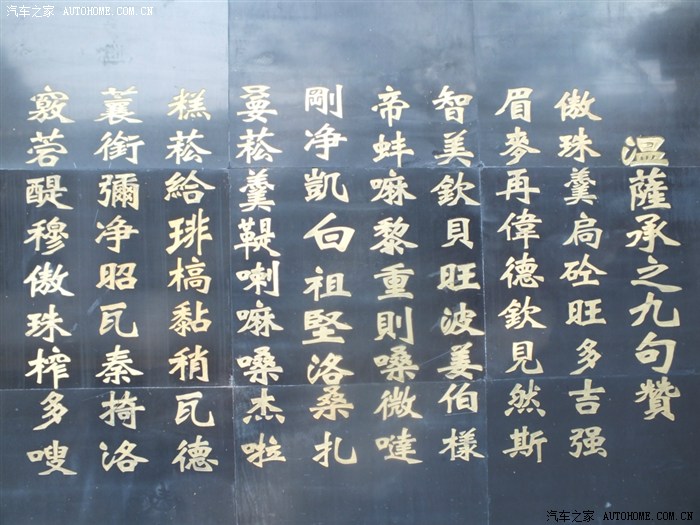 汽车之家 AUTOHOME.COM.CN
溫薩承之九句贊
傲珠羹扃砼旺多吉强
眉麥再偉德欽見然斯
智美欽貝旺波姜伯樣
帝蚌嘛黎重則嗓微噠
剛净凱向祖堅洛桑扎
菘羹鞮喇嘛嗓杰啦
糕菘給琲槁黏稍瓦德
蘘銜彌净昭瓦秦掎洛
醍穆傲珠榨多嗖
汽车之家 AUTOHOME.COM.CN